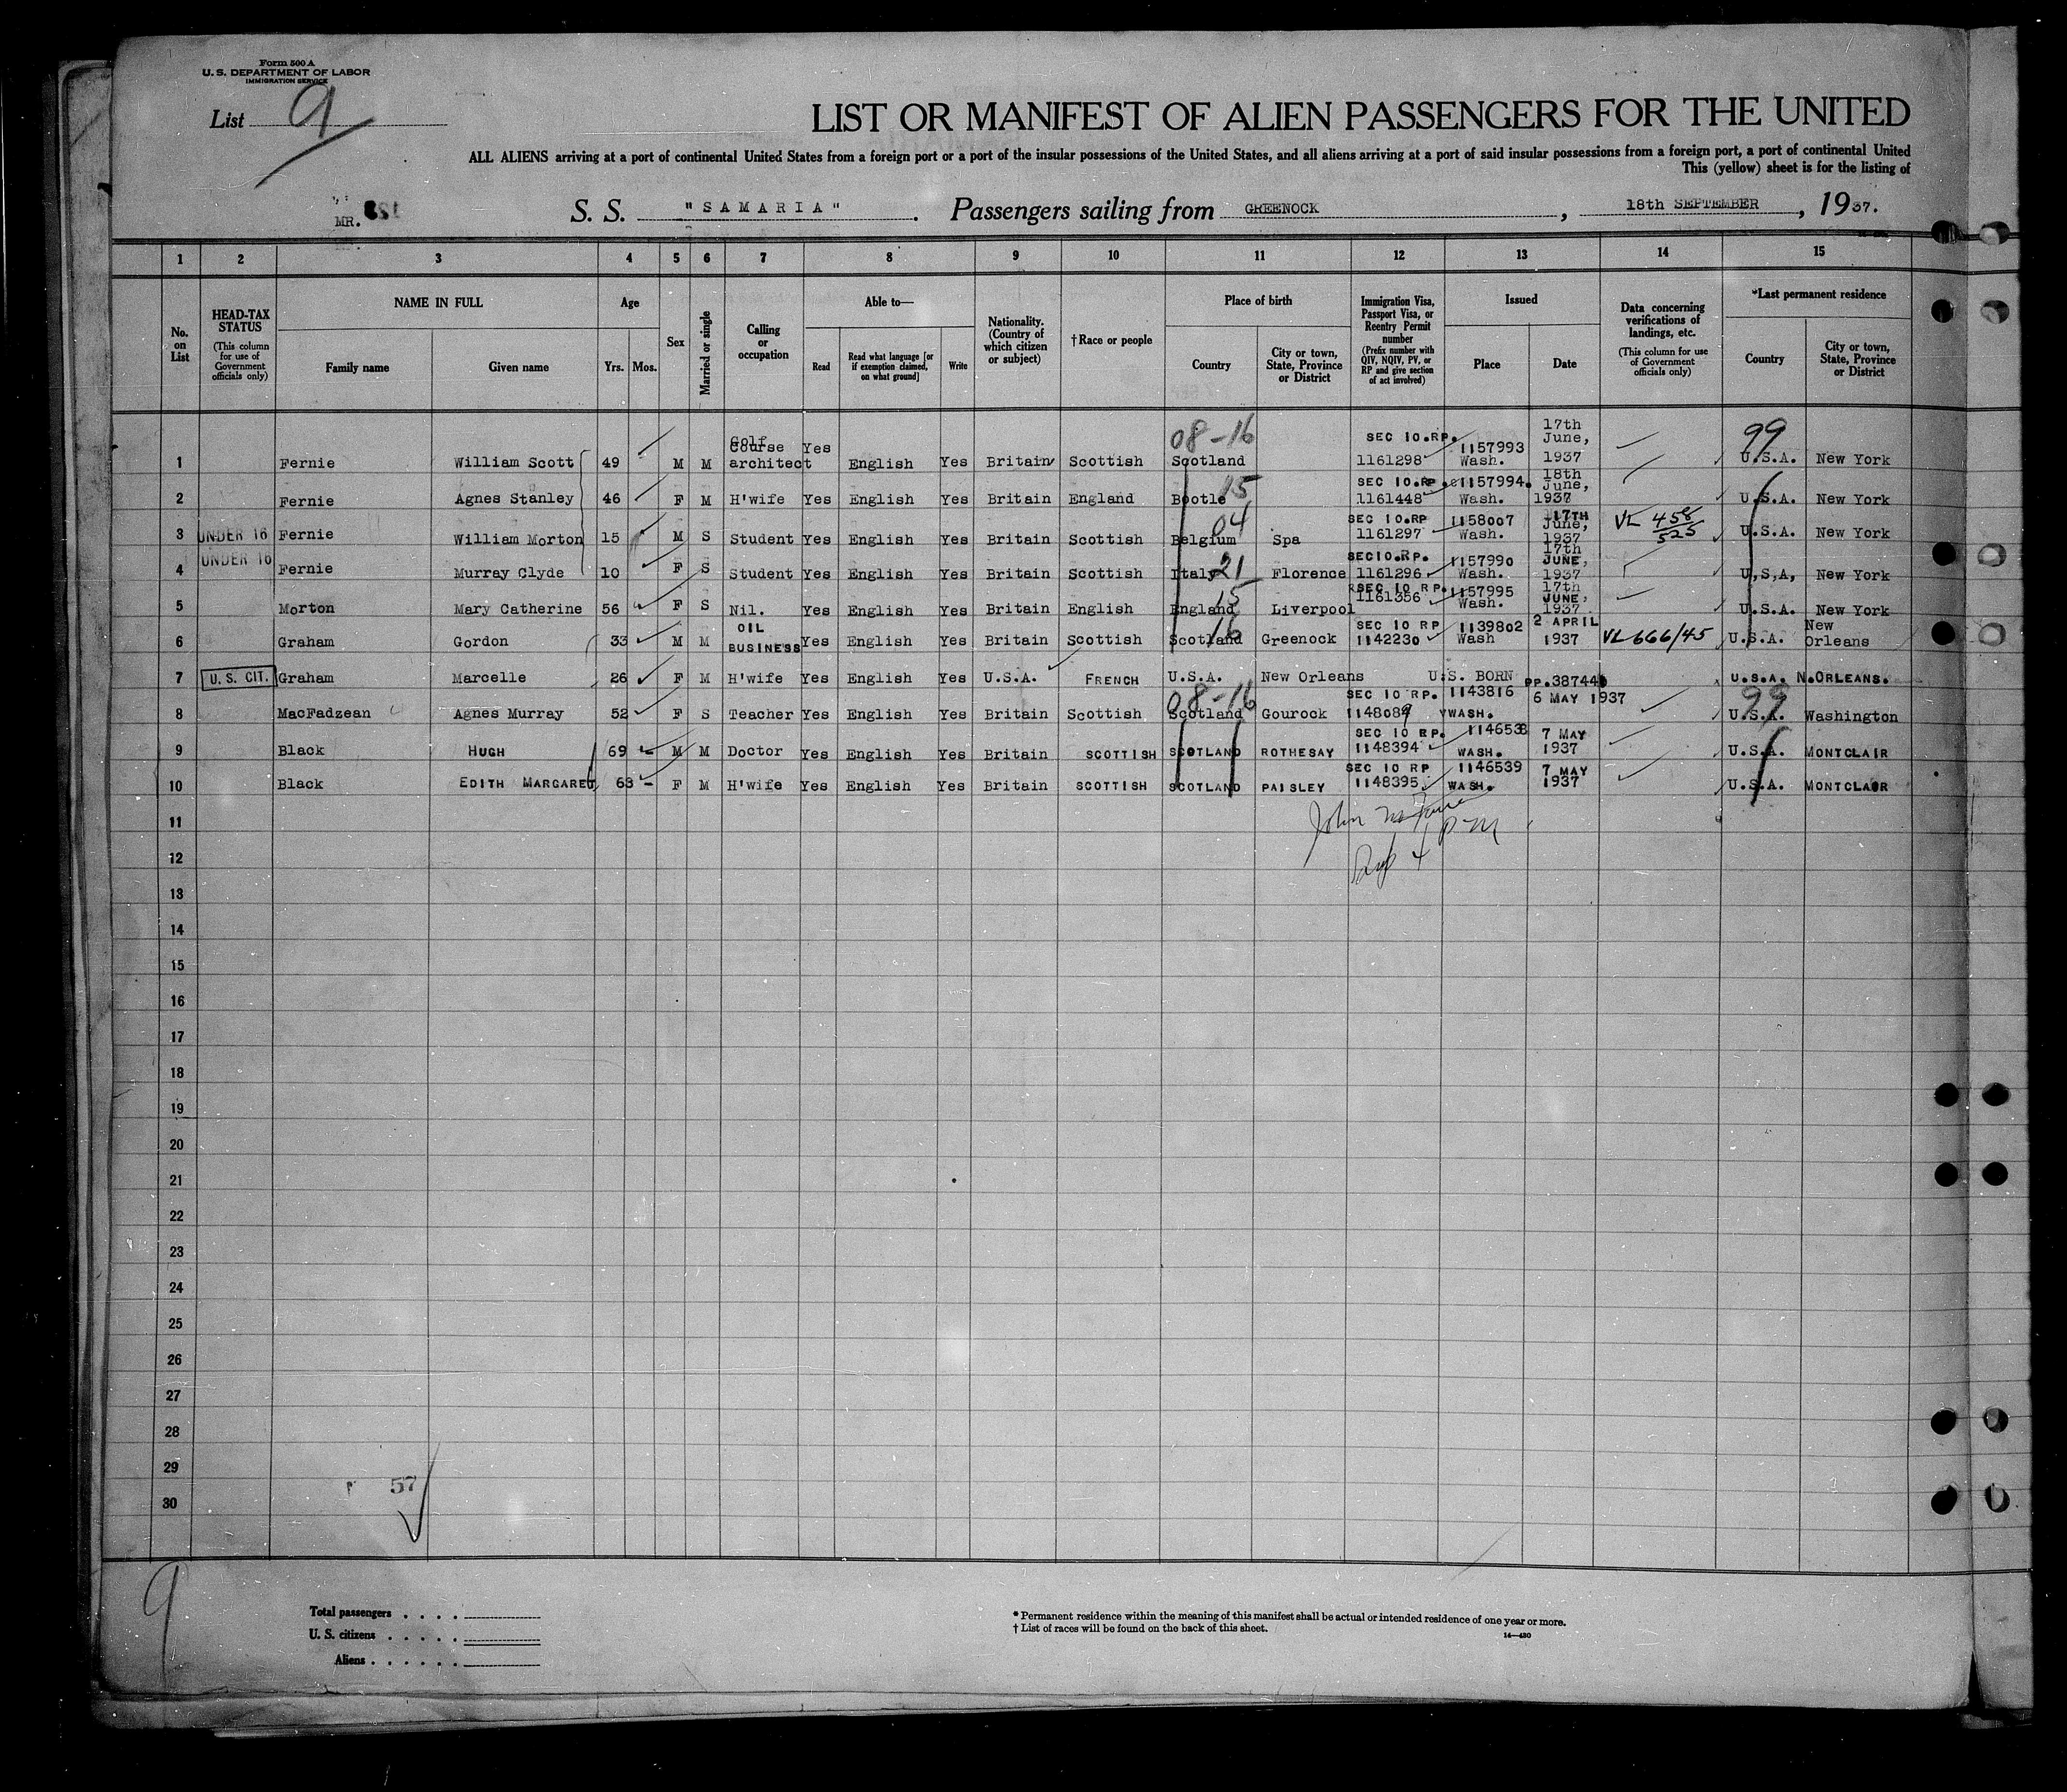 Form 500 A
U. S. DEPARTMENT OF LABOR
IMMIGRATION SERVICE
List 9
LIST OR MANIFEST OF ALIEN PASSENGERS FOR THE UNITED
ALL ALIENS arriving at a port of continental United States from a foreign port or a port of the insular possessions of the United States, and all aliens arriving at a port of said insular possessions from a foreign port, a port of continental United
This (yellow) sheet is for the listing of
MR.
S. S. "SAMARIA". Passengers sailing from GREENOCK, 18th SEPTEMBER, 1937.
1 2 3 4 5 6 7 8 9 10 11 12 13 14 15
No. on List
HEAD-TAX STATUS (This column for use of Government officials only)
NAME IN FULL
Family name Given name
Age
Yrs. Mos.
Sex
Married or single
Calling or occupation
Able to—
Read Read what language [or if exemption claimed, on what ground] Write
Nationality. (Country of which citizen or subject)
† Race or people
Place of birth
Country City or town, State, Province or District
Immigration Visa, Passport Visa, or Reentry Permit number (Prefix number with QIV, NQIV, PV, or RP and give section of act involved)
Issued
Place Date
Data concerning verifications of landings, etc. (This column for use of Government officials only)
*Last permanent residence
Country City or town, State, Province or District
08-16 SEC 10.RP. 1157993 17th June, 99
1 Fernie William Scott 49 M M Golf Course architect Yes English Yes Britain Scottish Scotland 1161298 Wash. 1937 U.S.A. New York
15 SEC 10.RP. 1157994. 18th June,
2 Fernie Agnes Stanley 46 F M H'wife Yes English Yes Britain England Bootle 1161448 Wash. 1937 U.S.A. New York
04 SEC 10.RP 1158007 17TH June, VL 458/525
3 UNDER 16 Fernie William Morton 15 M S Student Yes English Yes Britain Scottish Belgium Spa 1161297 Wash. 1937 U.S.A. New York
21 SEC10.RP. 1157990 17th JUNE,
4 UNDER 16 Fernie Murray Clyde 10 F S Student Yes English Yes Britain Scottish Italy Florence 1161296 Wash. 1937 U,S,A, New York
15 SEC 10 RP. 1157995 17th JUNE,
5 Morton Mary Catherine 56 F S Nil. Yes English Yes Britain English England Liverpool 1161356 Wash. 1937 U.S.A. New York
16 SEC 10 RP 1139802 2 APRIL
6 Graham Gordon 33 M M OIL BUSINESS Yes English Yes Britain Scottish Scotland Greenock 1142230 Wash 1937 VL 666/45 U.S.A. New Orleans
7 U. S. CIT. Graham Marcelle 26 F M H'wife Yes English Yes U.S.A. FRENCH U.S.A. New Orleans U.S. BORN PP. U.S.A. N.ORLEANS.
08-16 SEC 10 RP. 1143816 6 MAY 1937 99
8 MacFadzean Agnes Murray 52 F S Teacher Yes English Yes Britain Scottish Scotland Gourock 1148089 WASH. U.S.A. Washington
SEC 10 RP. 1146538 7 MAY
9 Black HUGH 69 M M Doctor Yes English Yes Britain SCOTTISH SCOTLAND ROTHESAY 1148394 WASH. 1937 U.S.A. MONTCLAIR
SEC 10 RP 1146539 7 MAY
10 Black EDITH MARGARET 63 F M H'wife Yes English Yes Britain SCOTTISH SCOTLAND PAISLEY 1148395 WASH. 1937 U.S.A. MONTCLAIR
11 John
12
13
14
15
16
17
18
19
20
21
22
23
24
25
26
27
28
29
57
30
9
Total passengers
U. S. citizens
Aliens
* Permanent residence within the meaning of this manifest shall be actual or intended residence of one year or more.
† List of races will be found on the back of this sheet.
14—430